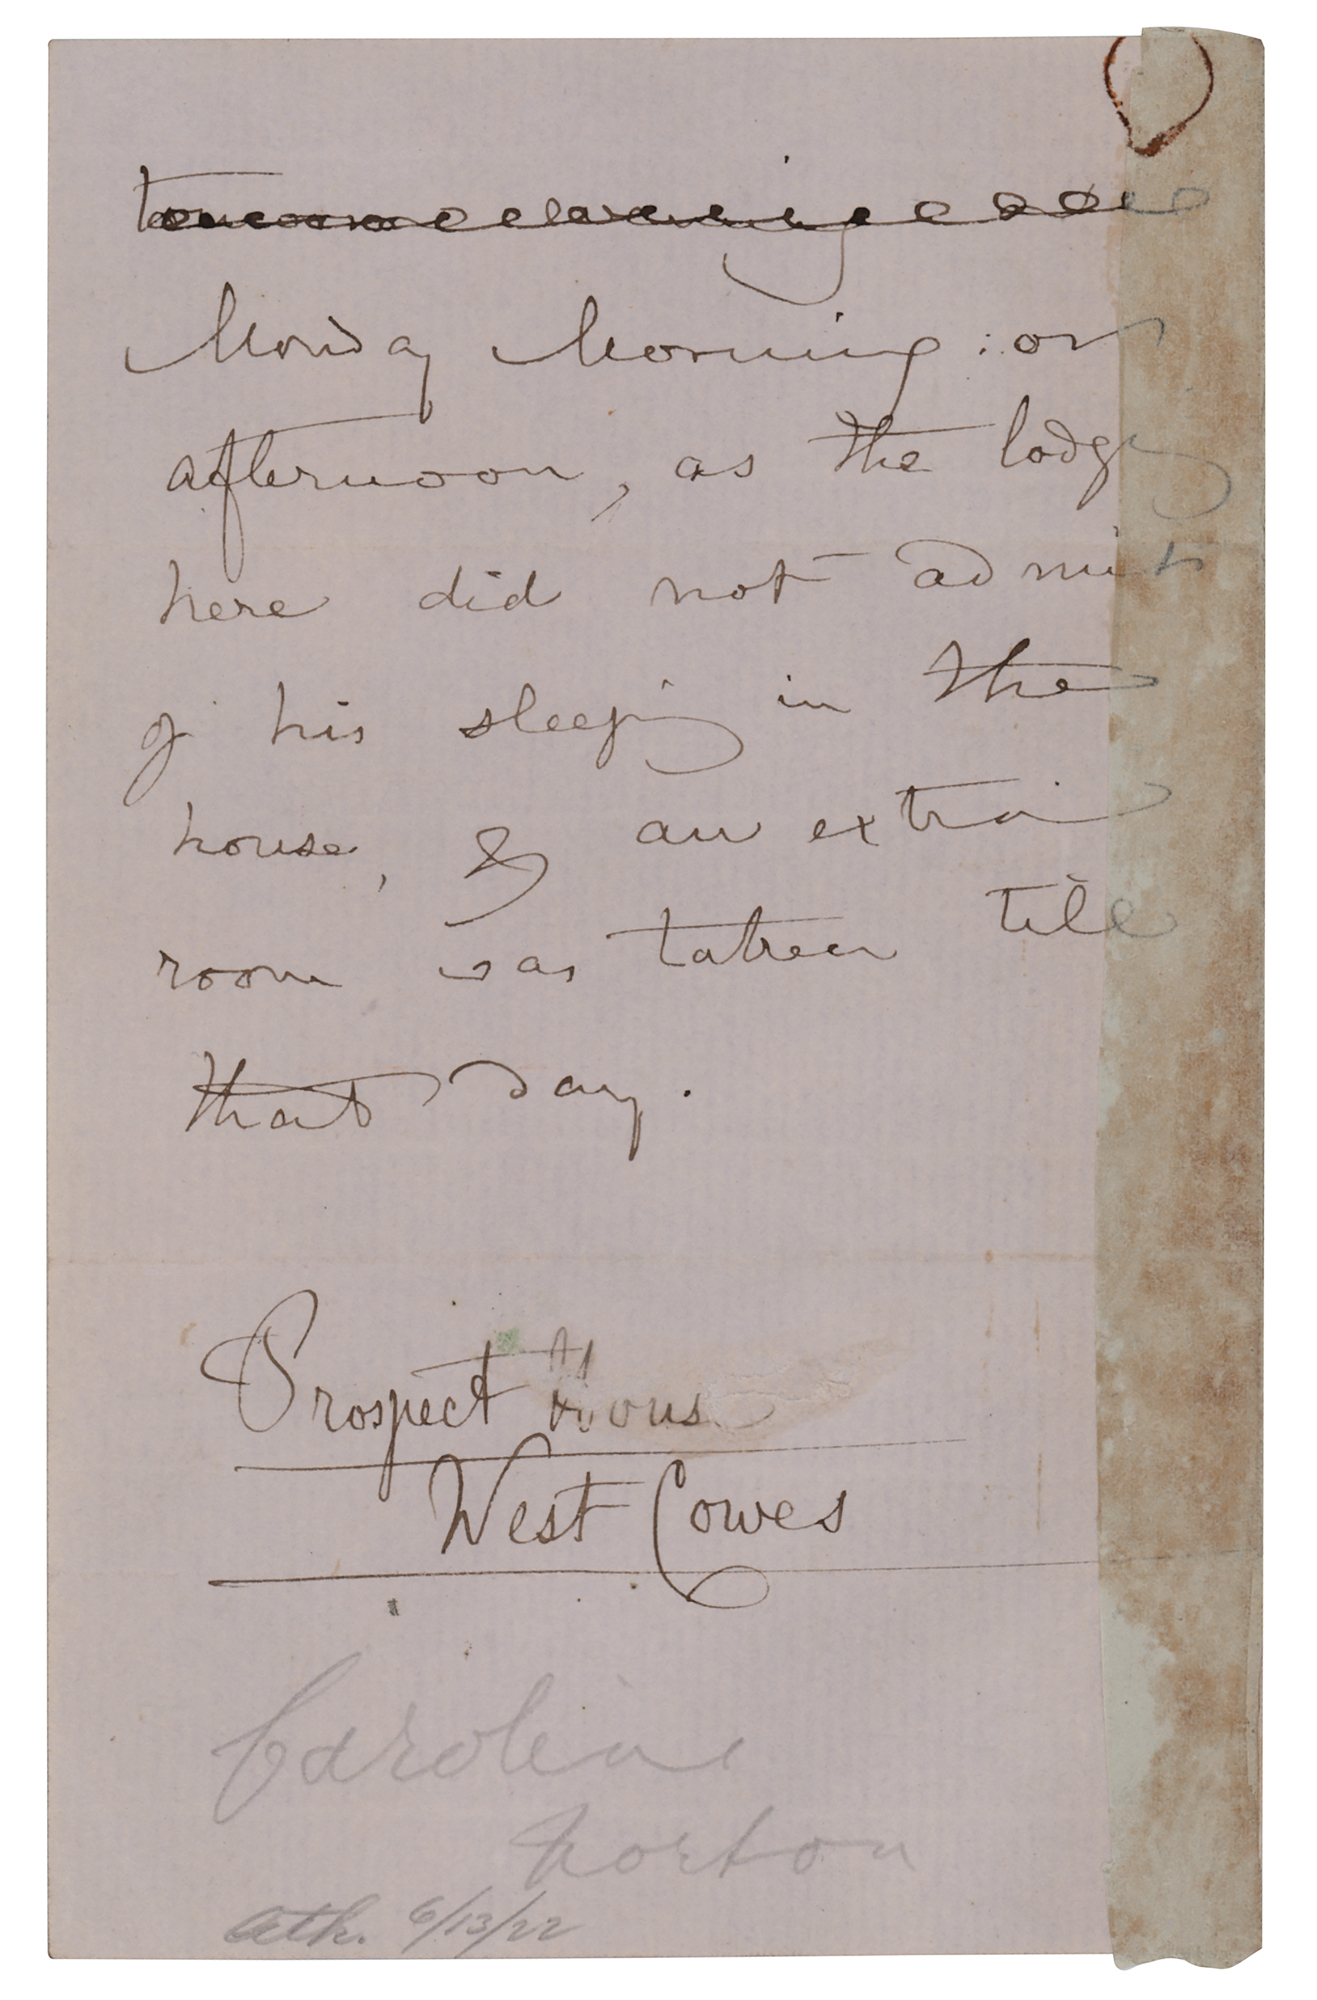 Monday Morning : or
afternoon, as the lodging
here did not admit
of his sleeping in the
house, & an extra
room was taken till
that day.
Prospect House
West Cowes
Caroline
Norton
Ath. 6/13/22